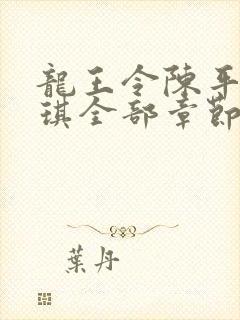 龍王令陳平
琪全部章節
葉丹